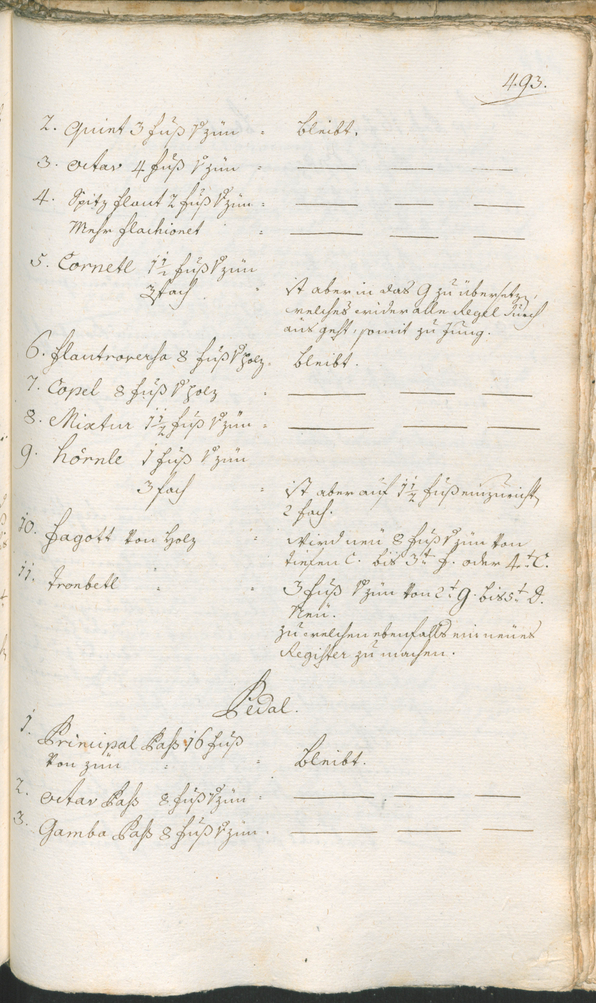 493.
2. Quint 3 fuß V zün " bleibt.
3. Octav 4 fuß V zün " — — —
4. Spitz flaut 2 fuß V zün " — — —
Mehr flachionet " — — —
5. Cornetl 1 1/2 fuß V zün
3fach " ist aber in das G zu übersetzen,
welches wider alle Regel durch
aus geht, somit zu Jung.
6. flautroversa 8 fuß V Holz. bleibt.
7. Copel 8 fuß V Holz " — — —
8. Mixtur 1 1/2 fuß V zün " — — —
9. Hörnle 1 fuß V zün
3 fach " ist aber auf 1 1/2 fuß einzuricht
2 fach.
10. Fagott von Holz " wird neü 8 fuß V zün von
tiefen C. bis 3t f. oder 4t C.
11. Trombetl " " 3 fuß V zün von 2t g. bis 5t D.
Neü.
zu welchen ebenfalls ein neües
Register zu machen.
Pedal.
1. Principal Paß 16 fuß
von zün " " bleibt.
2. Octav Paß 8 fuß V zün " — — —
3. Gamba Paß 8 fuß V zün " — — —